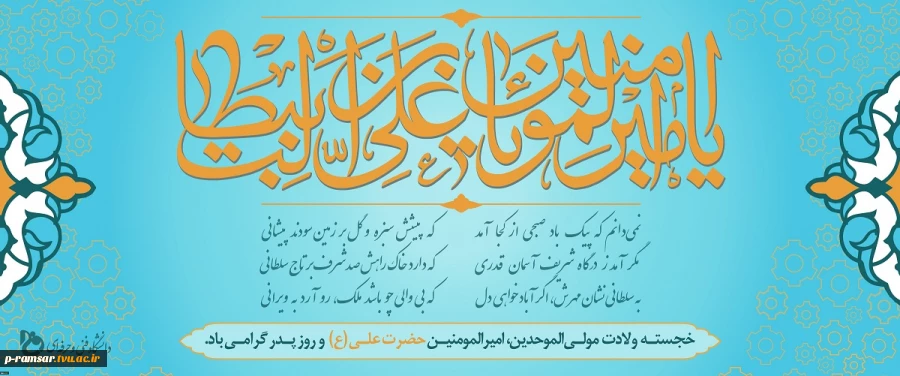 یا امیرالمومنین یا علی بن ابیطالب
نمی‌دانم که پیک باد صبحی از کجا آمد
که پیشش سبزه و گل بر زمین سودند پیشانی
مگر آمد ز درگاه شریف آسمان قدری
که دارد خاک راهش صد شرف بر تاج سلطانی
به سلطانی نشان مهرش، اگر آباد خواهی دل
که بی والی چو باشد ملک، رو آرد به ویرانی
خجسته ولادت مولی‌الموحدین، امیرالمومنین حضرت علی (ع) و روز پدر گرامی باد.
دانشگاه فنی و حرفه‌ای
p-ramsar.tvu.ac.ir